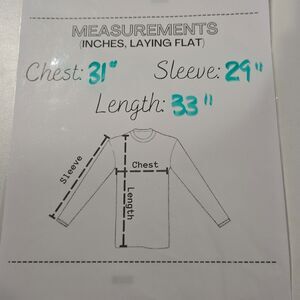 MEASUREMENTS
(INCHES, LAYING FLAT)
Chest: 31" Sleeve: 29"
Length: 33"
Sleeve
Chest
Length